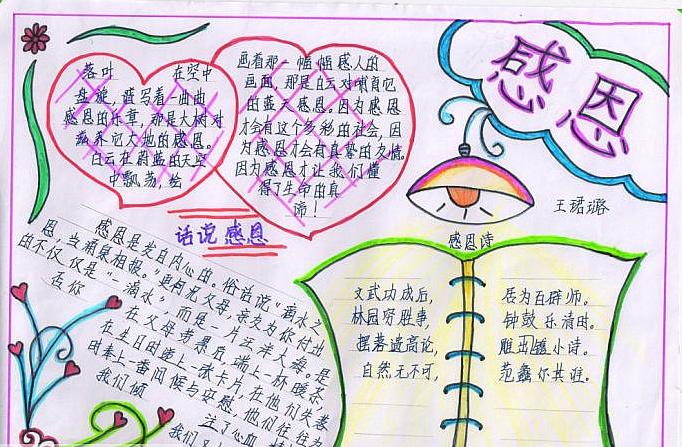 感恩
王珺璐
落叶 在空中
盘旋，谱写着一曲曲
感恩的乐章，那是大树对
滋养它大地的感恩。
白云在蔚蓝的天空
中飘荡，绘
画着那一幅幅感人的
画面，那是白云对哺育它
的蓝天感恩。因为感恩
才会有这个多彩的社会，因
为感恩才会有真挚的友情。
因为感恩才让我们懂
得了生命的真
谛！
话说感恩
感恩是发自内心的。俗话说“滴水之
恩，当涌泉相报。”更何况父母，亲友为你付出
的不仅仅是“一滴水”，而是一片汪洋大海。是
否你在父母劳累后端上一杯暖茶，
在生日时递上一张卡片，在他们失落
时奉上一番问候与安慰，他们往往为
我们倾 注了心血
我们
感恩诗
文武功成后，
居为百辟师。
林园穷胜事，
钟鼓乐清时。
摆落遗高论，
雕 小诗。
自然无不可，
范蠡尔其谁。